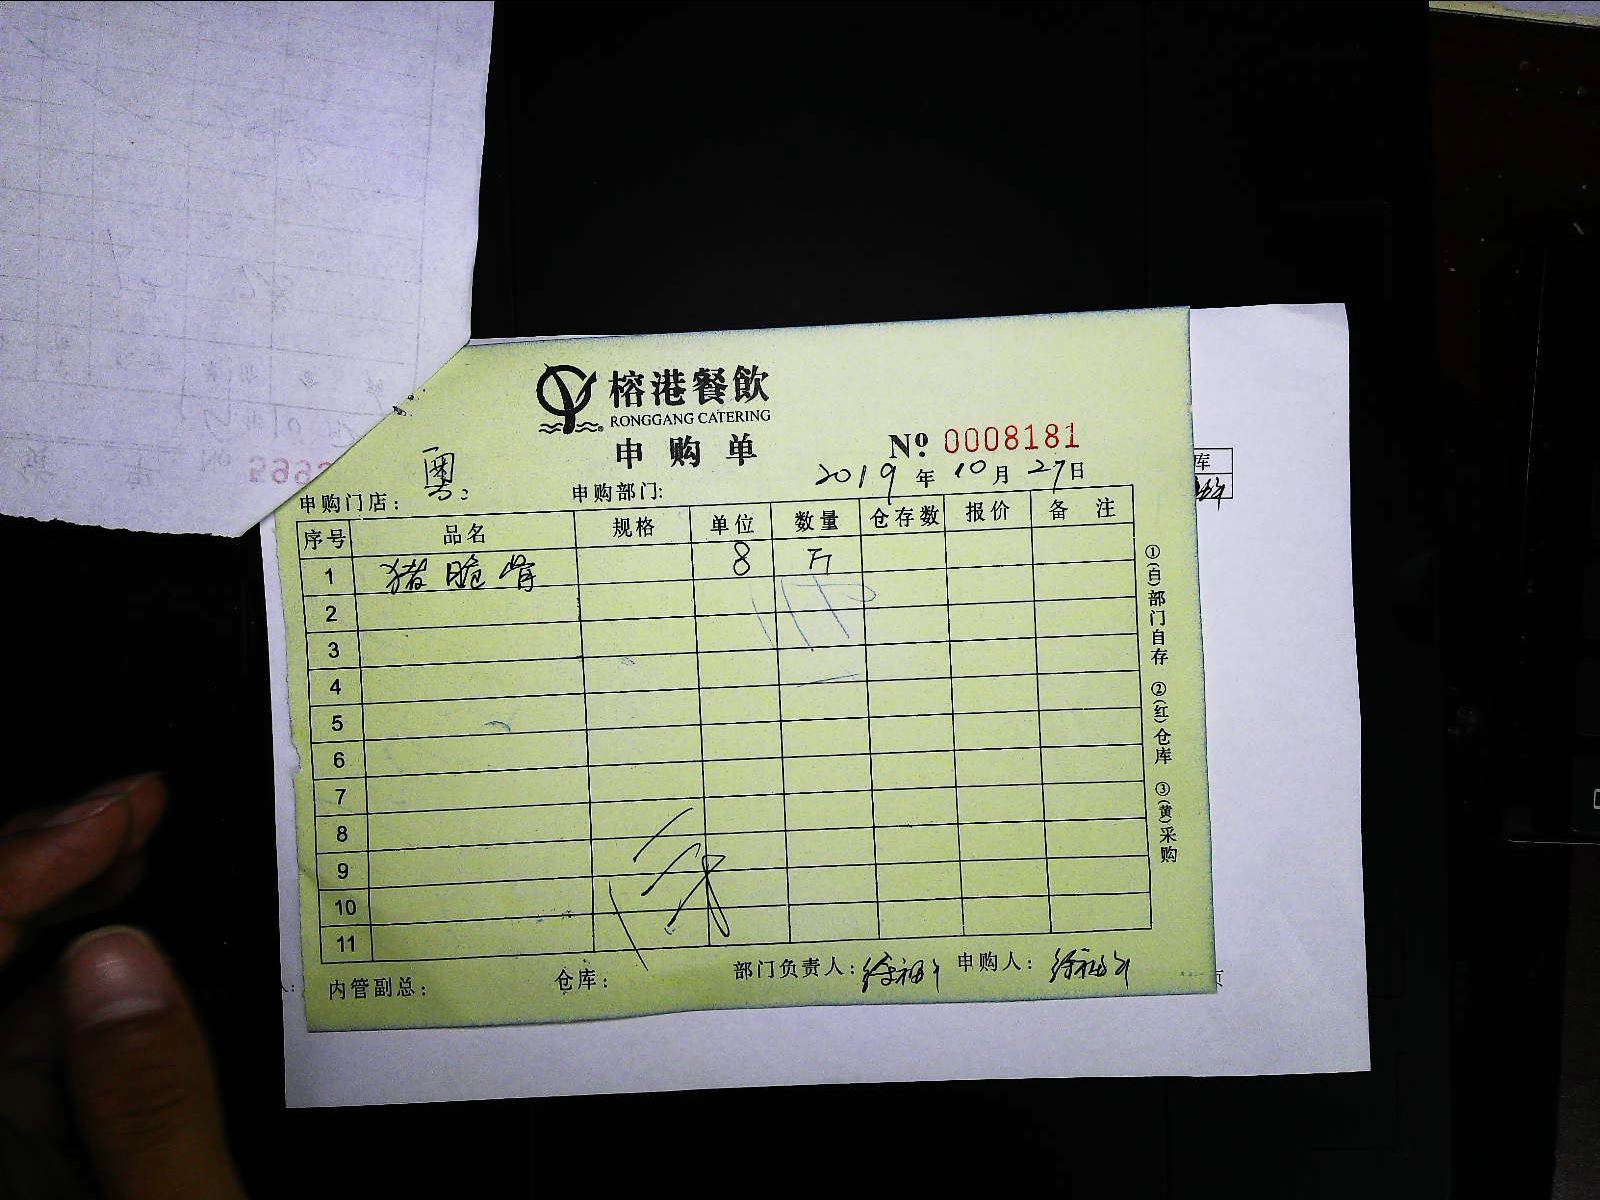 榕港餐飲
RONGGANG CATERING
申购单 Nº 0008181
2019年10月27日
申购门店: 粤 申购部门:
序号 品名 规格 单位 数量 仓存数 报价 备注
1 猪脆骨 8 斤
2
3
4
5
6
7
8
9
10
11
内管副总: 仓库: 部门负责人: 申购人:
①(白)部门自存 ②(红)仓库 ③(黄)采购
库